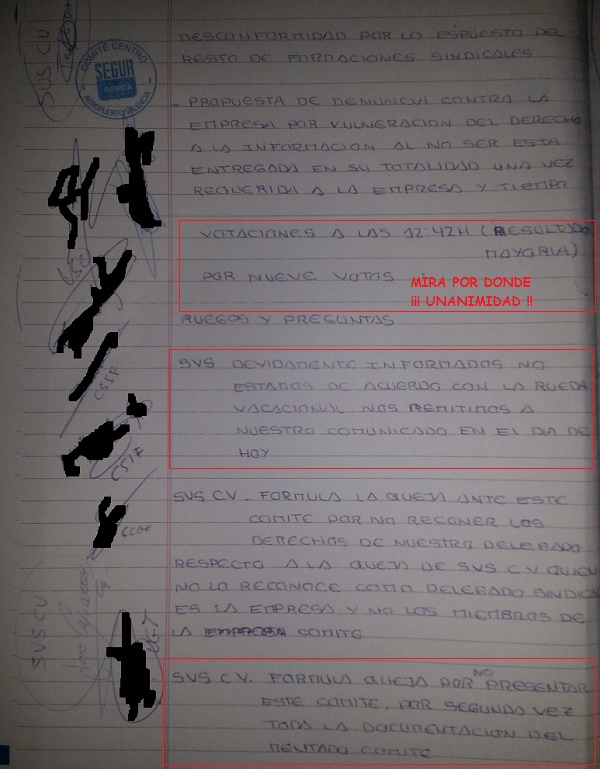 DESCONFORTMIDAD POR LO ESPUESTO DEL
RESTO DE FORMACIONES SINDICALES
- PROPUESTA DE DENUNCIA CONTRA LA
EMPRESA POR VULNERACION DEL DERECHO
A LA INFORMACION AL NO SER ESTA
ENTREGADA EN SU TOTALIDAD UNA VEZ
REQUERIDA A LA EMPRESA Y TIEMPO
VOTACIONES A LAS 12:42H (RESULTADO
MAYORIA)
POR NUEVE VOTOS
MIRA POR DONDE
¡¡¡ UNANIMIDAD !!
RUEGOS Y PREGUNTAS
SVS DEVIDAMENTE INFORMADOS NO
ESTAMOS DE ACUERDO CON LA RUEDA
VACACIONAL NOS REMITIMOS A
NUESTRO COMUNICADO EN EL DIA DE
HOY
SVS CV. FORMULA LA QUEJA ANTE ESTE
COMITE POR NO RECONER LOS
DERECHOS DE NUESTRO DELEGADO
RESPECTO A LA QUEJA DE SVS CV QUIEN
NO LO RECONOCE COMO DELEGADO SINDICA
ES LA EMPRESA Y NO LOS MIEMBROS DE
LA COMITE
SVS CV. FORMULA QUEJA POR NO PRESENTAR
ESTE COMITE, POR SEGUNDA VEZ
TODA LA DOCUMENTACION DEL
MENTADO COMITE
SVS CV
COMITÉ CENTRO
SEGUR
IBERICA
AEROPUERTO VALENCIA
USO
CSIF
CSIF
CCOO
UGT
SVS CV